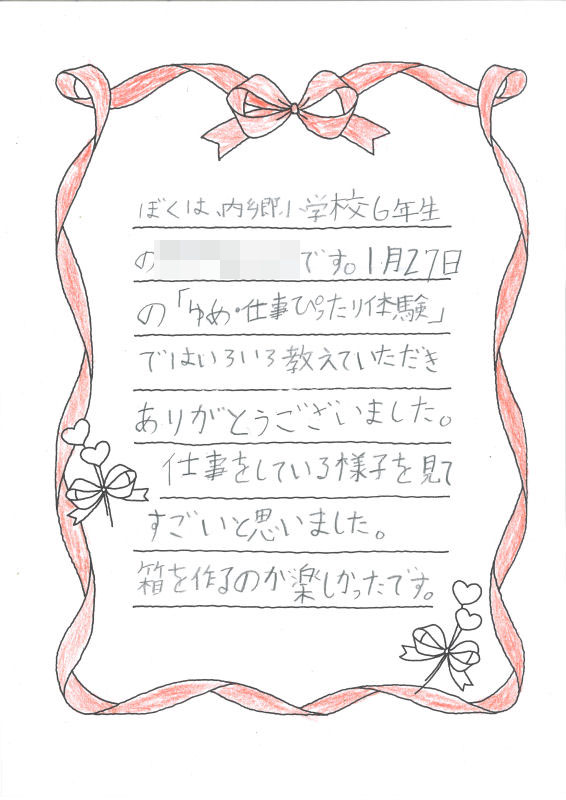 ぼくは、内郷小学校6年生
の です。1月27日
の「ゆめ・仕事ぴったり体験」
ではいろいろ教えていただき
ありがとうございました。
仕事をしている様子を見て
すごいと思いました。
箱を作るのが楽しかったです。